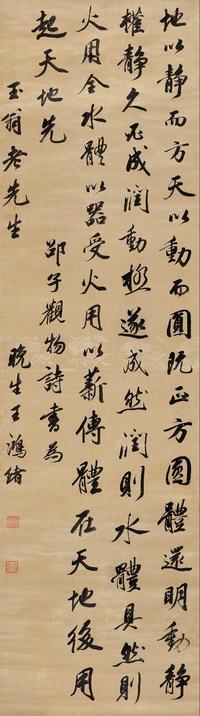 地以靜而方天以動而圓既正方圓體還明動靜
權靜久必成潤動極遂成然潤則水體具然則
火用全水體以器受火用以薪傳體在天地後用
起天地先 邵子觀物詩書為
玉翁老先生 晚生王鴻緒